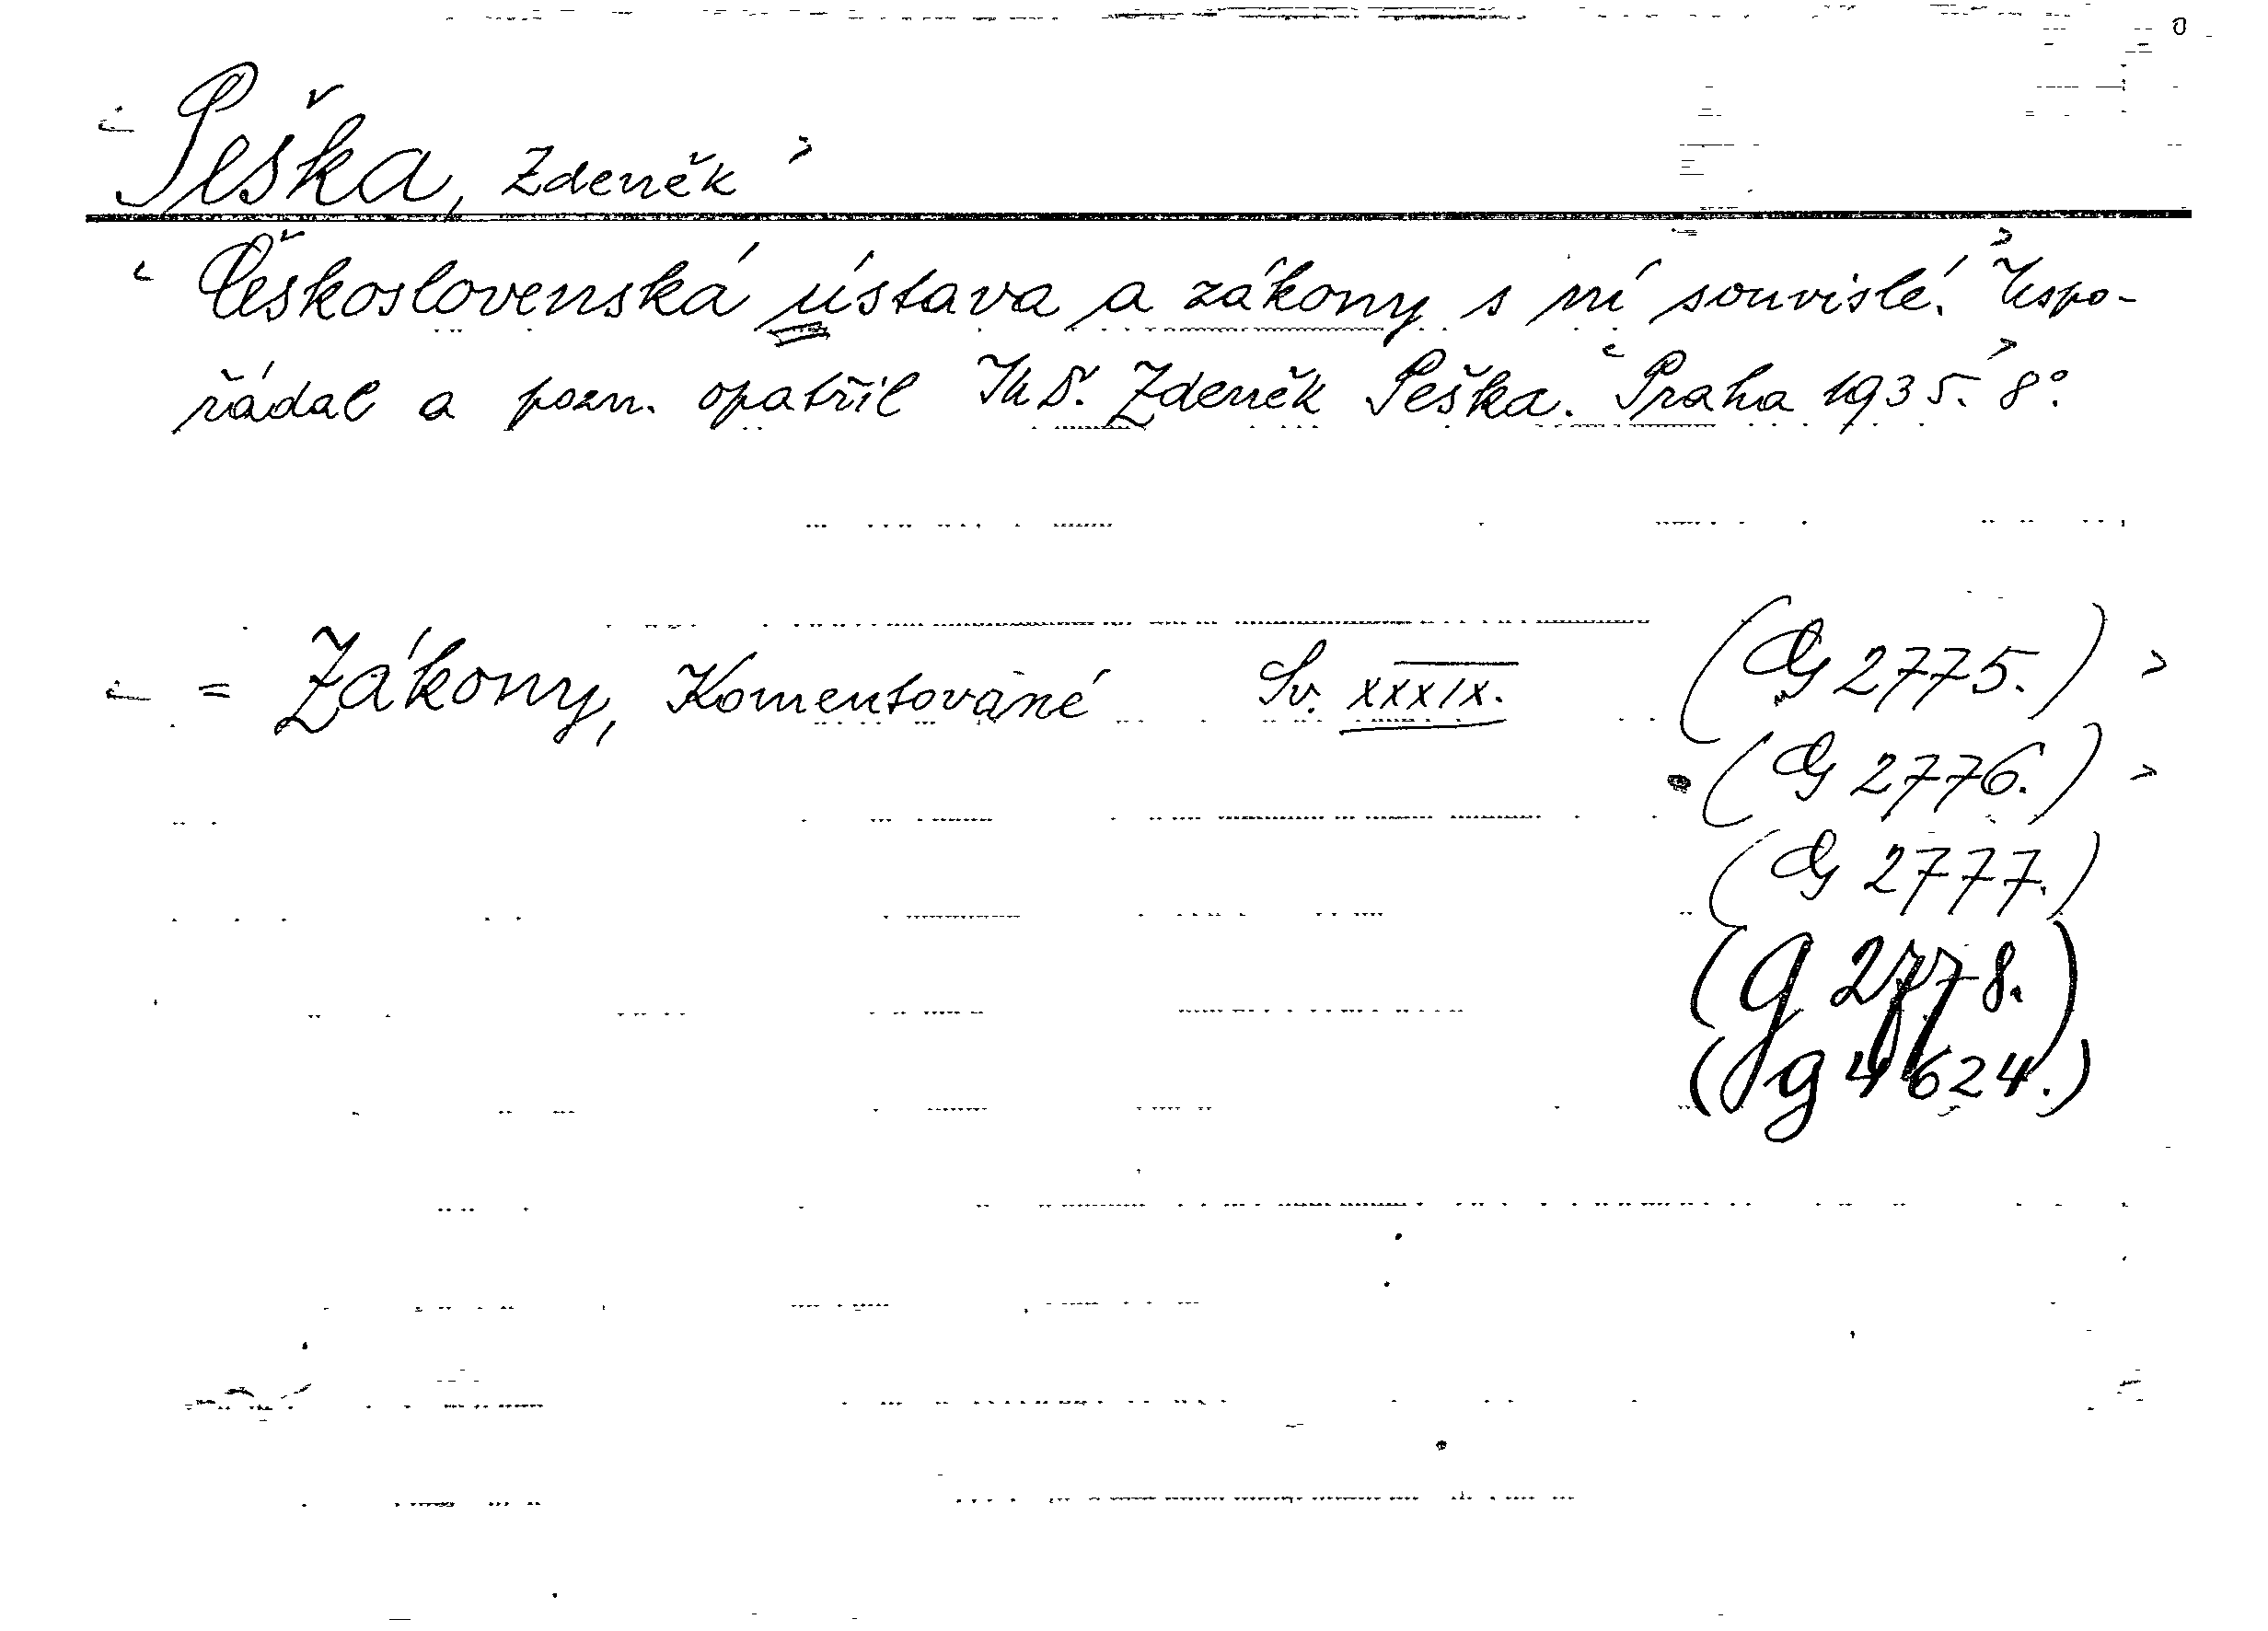 Peška, Zdeněk
Československá ústava a zákony s ní souvislé. Uspo-
řádal a pozn. opatřil JUD. Zdeněk Peška. Praha 1935. 8°.
= Zákony, Komentované Sv. XXXIX. (G 2775.)
(G 2776.)
(G 2777.)
(G 2778.)
(g 4624.)